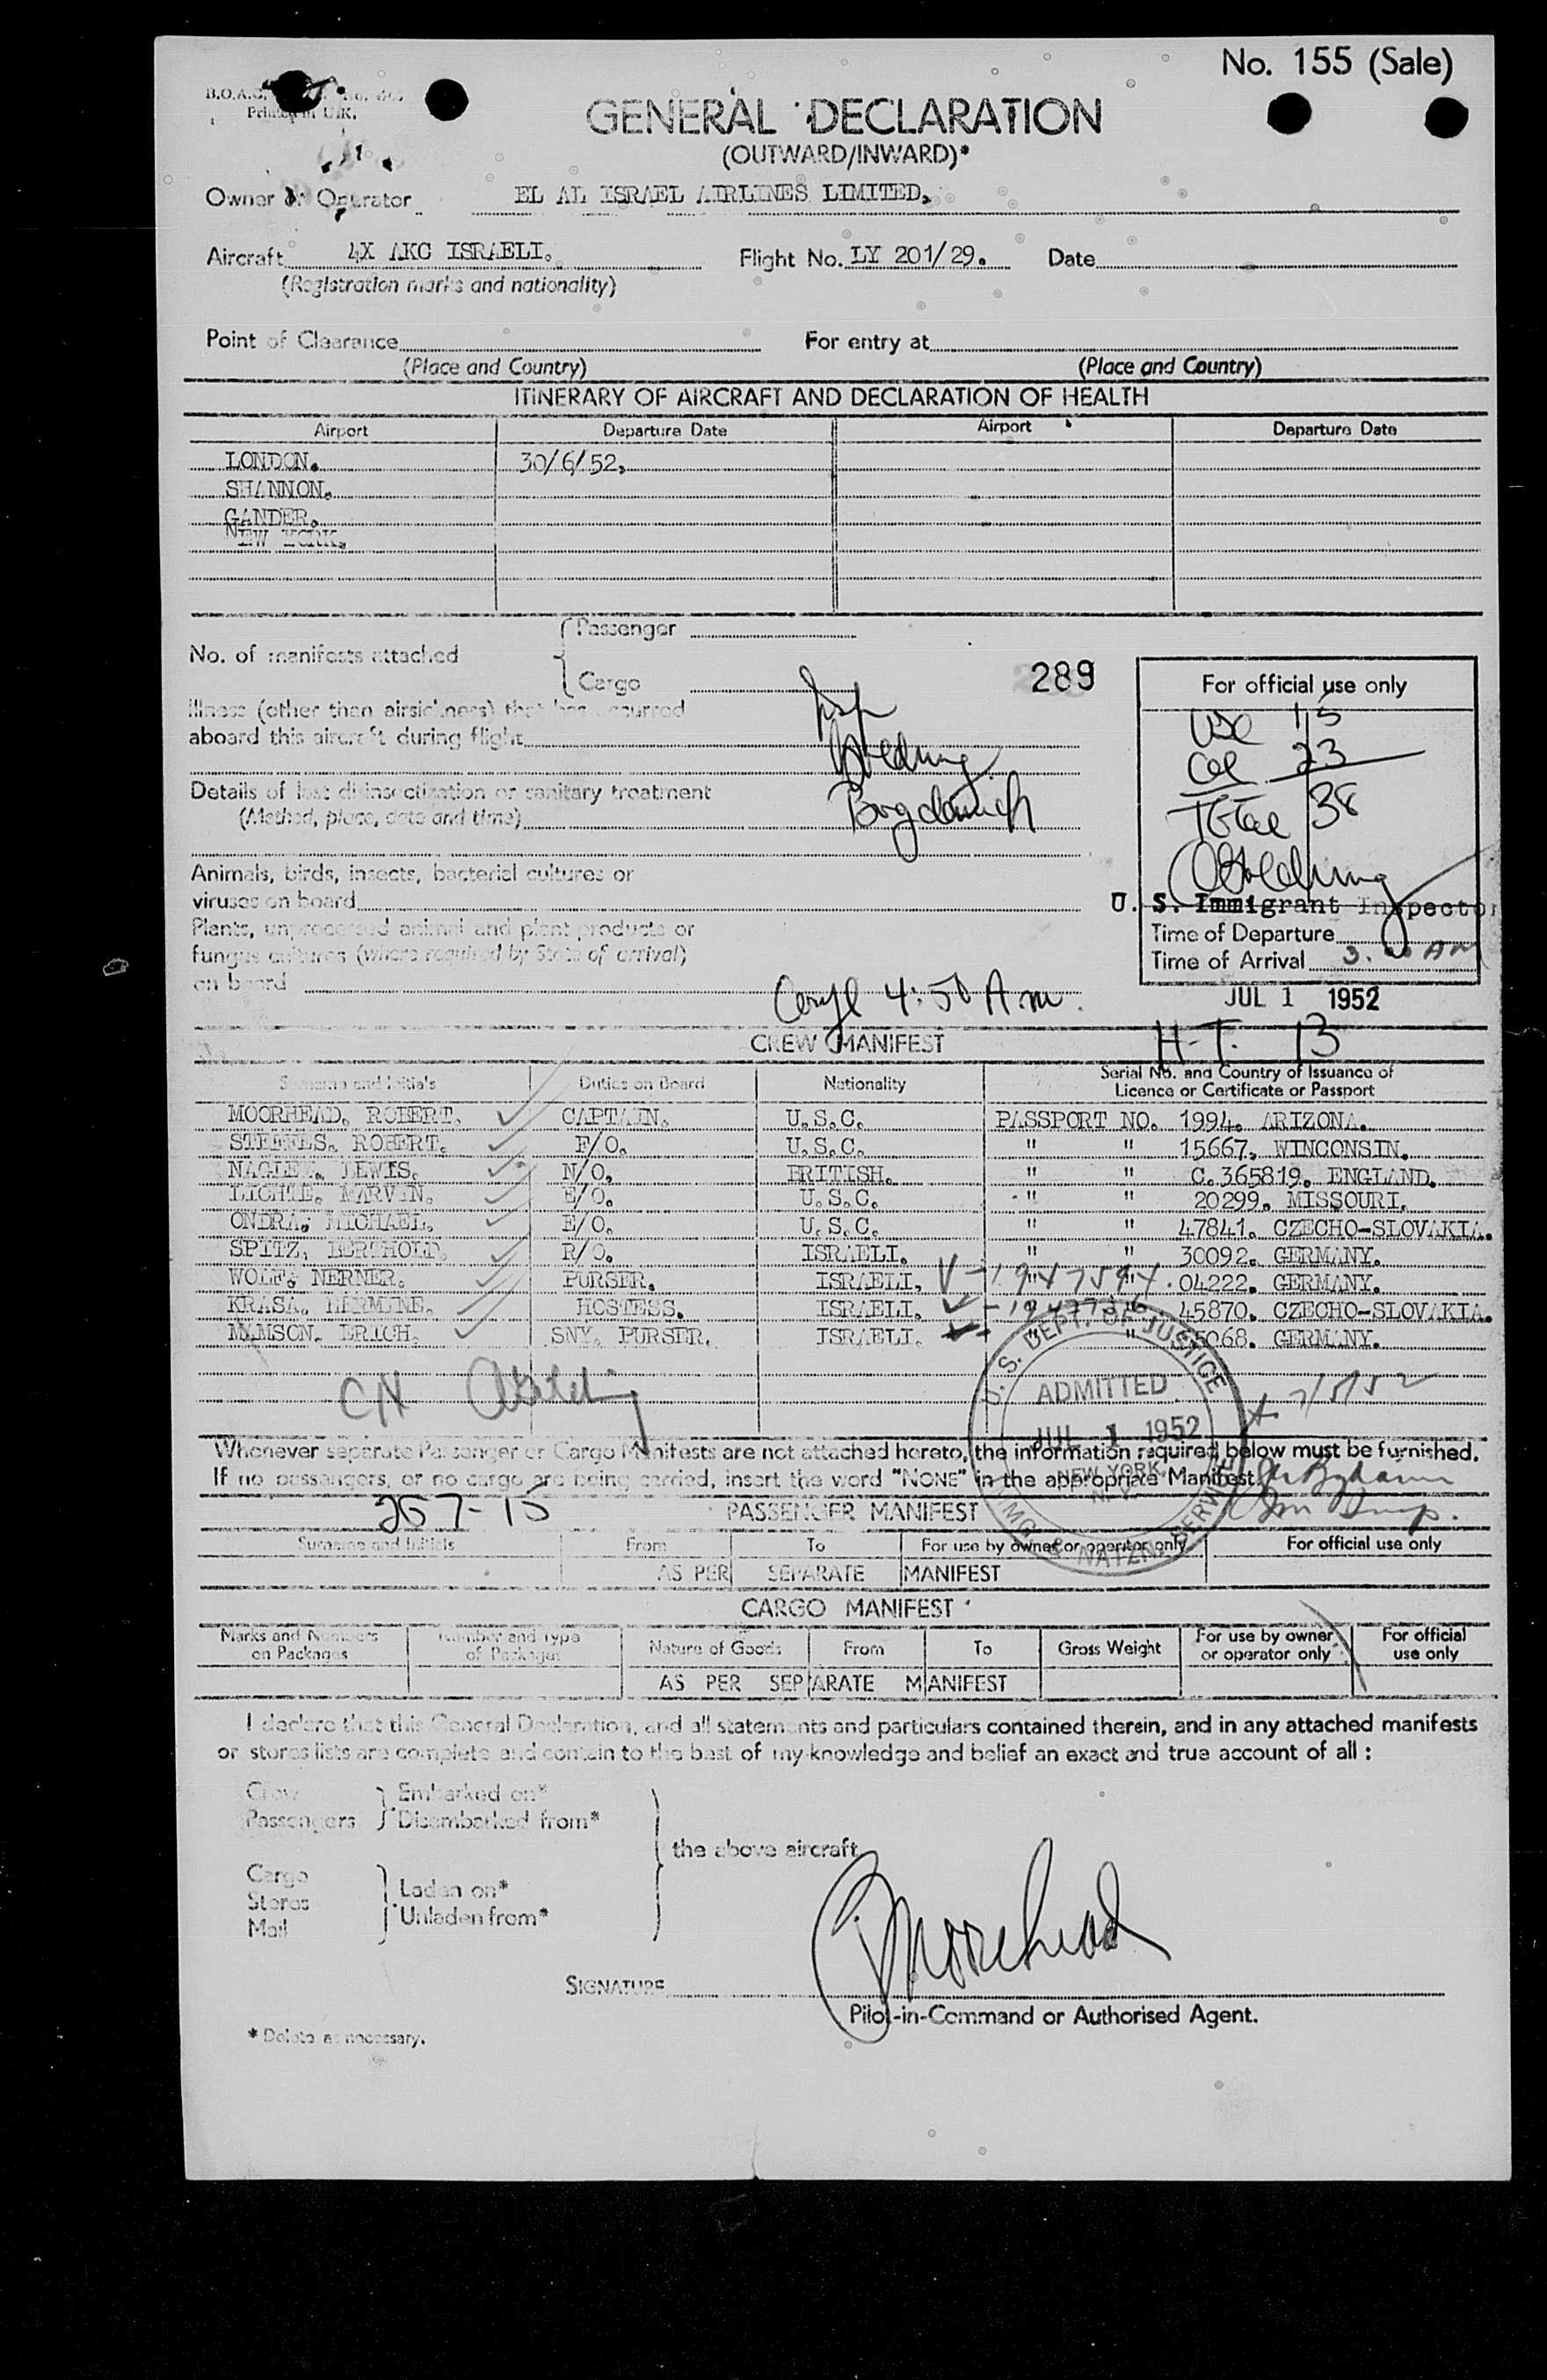 No. 155 (Sale)
B.O.A.C.
Printed in U.K.
GENERAL DECLARATION
(OUTWARD/INWARD)*
Owner or Operator EL AL ISRAEL AIRLINES LIMITED.
Aircraft 4X AKC ISRAELI. Flight No. LY 201/29. Date
(Registration marks and nationality)
Point of Clearance For entry at
(Place and Country) (Place and Country)
ITINERARY OF AIRCRAFT AND DECLARATION OF HEALTH
Airport Departure Date Airport Departure Date
LONDON. 30/6/52.
SHANNON.
GANDER.
NEW YORK.
No. of manifests attached
Passenger
Cargo
289
For official use only
USC 15
Cel 23
Total 38
U. S. Immigrant Inspector
Time of Departure
Time of Arrival 3. AM
JUL 1 1952
Illness (other than airsickness) that has occurred
aboard this aircraft during flight
Insp
Details of last disinsectization or sanitary treatment
(Method, place, date and time)
Animals, birds, insects, bacterial cultures or
viruses on board
Plants, unprocessed animal and plant products or
fungus cultures (where required by State of arrival)
on board
4:50 A.m.
H.T. 13
CREW MANIFEST
Surname and Initials Duties on Board Nationality Serial No. and Country of Issuance of
Licence or Certificate or Passport
MOORHEAD, ROBERT. CAPTAIN. U.S.C. PASSPORT NO. 1994. ARIZONA.
STEFFLS, ROBERT. F/O. U.S.C. " " 15667. WINCONSIN.
LEWIS. N/O. BRITISH. " " C.365819. ENGLAND.
MARVIN. E/O. U.S.C. " " 20299. MISSOURI.
ONDRA, MICHAEL. E/O. U.S.C. " " 47841. CZECHO-SLOVAKIA.
SPITZ, BERTHOLD. R/O. ISRAELI. " " 30092. GERMANY.
WOLF, NERNER. PURSER. ISRAELI. 04222. GERMANY.
KRASA, HERMINE. HOSTESS. ISRAELI. 45870. CZECHO-SLOVAKIA.
MAMSON, ERICH. SNY. PURSER. ISRAELI. " 5068. GERMANY.
U. S. DEPT. OF JUSTICE
ADMITTED
JUL 1 1952
NEW YORK,
N. Y.
IMMG. & NATZN. SERVICE
7/5/52
Whenever separate Passenger or Cargo Manifests are not attached hereto, the information required below must be furnished.
If no passengers, or no cargo are being carried, insert the word "NONE" in the appropriate Manifest.
267-15
PASSENGER MANIFEST
Surname and Initials From To For use by owner or operator only For official use only
AS PER SEPARATE MANIFEST
CARGO MANIFEST
Marks and Numbers on Packages Number and Type of Packages Nature of Goods From To Gross Weight For use by owner or operator only For official use only
AS PER SEPARATE MANIFEST
I declare that this General Declaration, and all statements and particulars contained therein, and in any attached manifests
or stores lists are complete and contain to the best of my knowledge and belief an exact and true account of all :
Crew
Passengers
Embarked on*
Disembarked from*
the above aircraft
Cargo
Stores
Mail
Laden on*
Unladen from*
Moorhead
SIGNATURE
Pilot-in-Command or Authorised Agent.
* Delete as necessary.